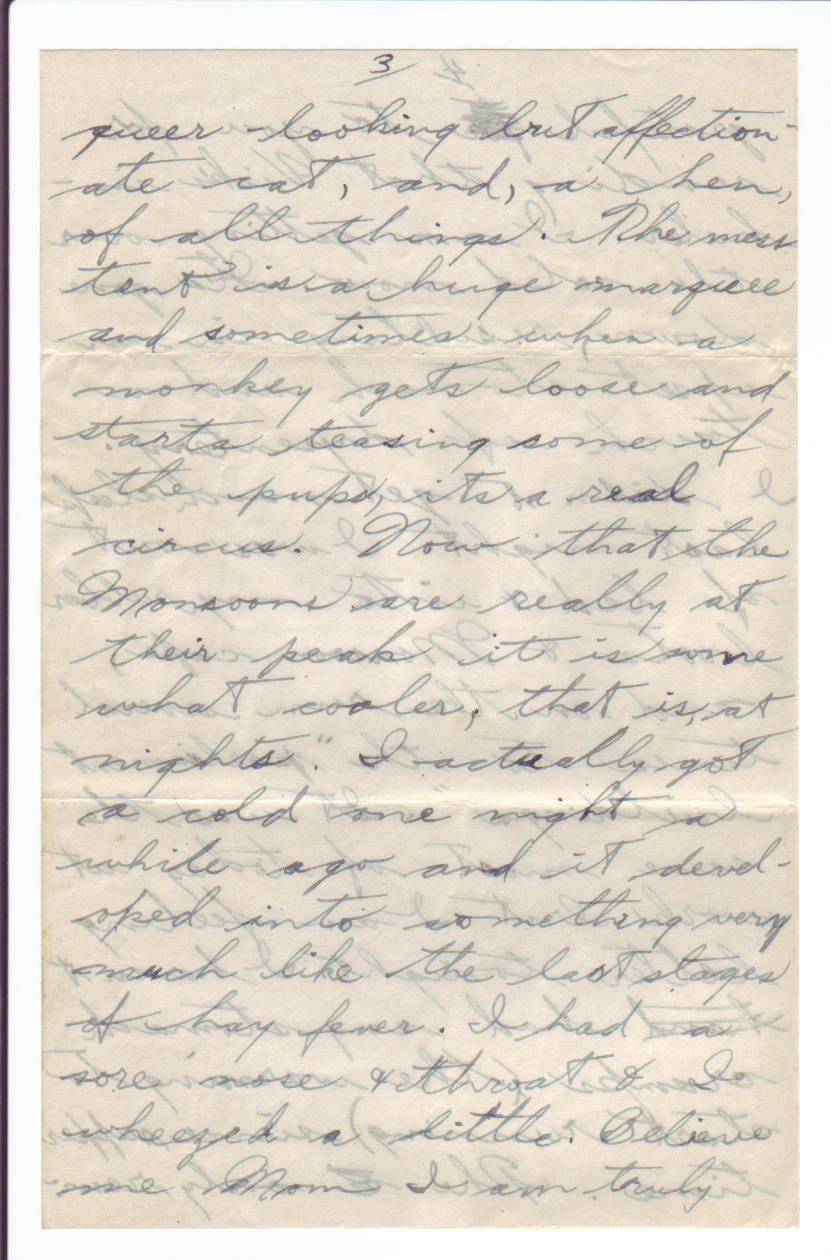 3
queer-looking but affection-
ate cat, and, a hen,
of all things. The mess
tent is a huge marquee
and sometimes when a
monkey gets loose and
starts teasing some of
the pups, its a real
circus. Now that the
Monsoons are really at
their peak it is some
what cooler, that is, at
nights. I actually got
a cold one night a
while ago and it devel-
oped into something very
much like the last stages
of hay fever. I had a
sore nose & throat & I
wheezed a little. Believe
me Mom I am truly